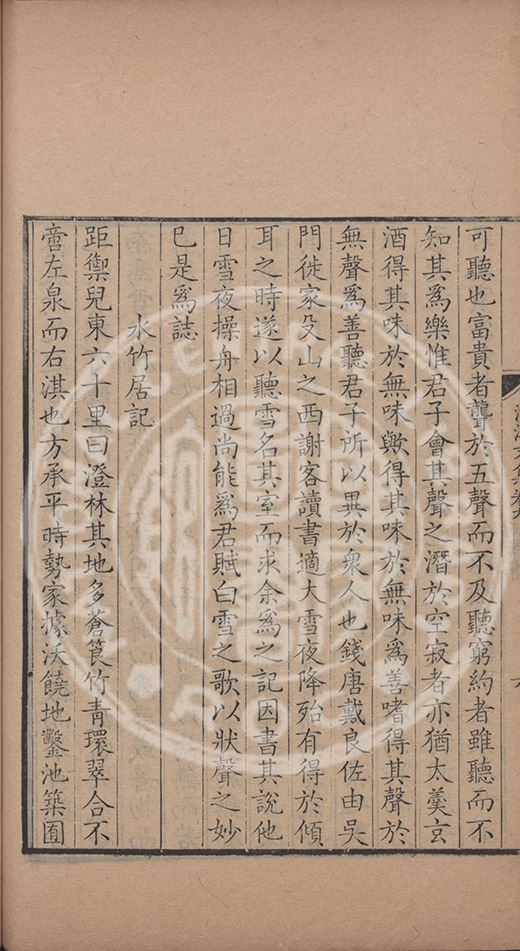 可聽也富貴者聾於五聲而不及聽窮約者雖聽而不
知其爲樂惟君子會其聲之潛於空寂者亦猶太羹玄
酒得其味於無味歟得其味於無味爲善嗜得其聲於
無聲爲善聽君子所以異於衆人也錢唐戴良佐由吳
門徙家殳山之西謝客讀書適大雪夜降殆有得於傾
耳之時遂以聽雪名其室而求余爲之記因書其說他
日雪夜操舟相過尚能爲君賦白雪之歌以狀聲之妙
已是爲誌
水竹居記
距禦兒東六十里曰澄林其地多蒼筤竹青環翠合不
啻左泉而右淇也方承平時勢家據沃饒地鑿池築囿